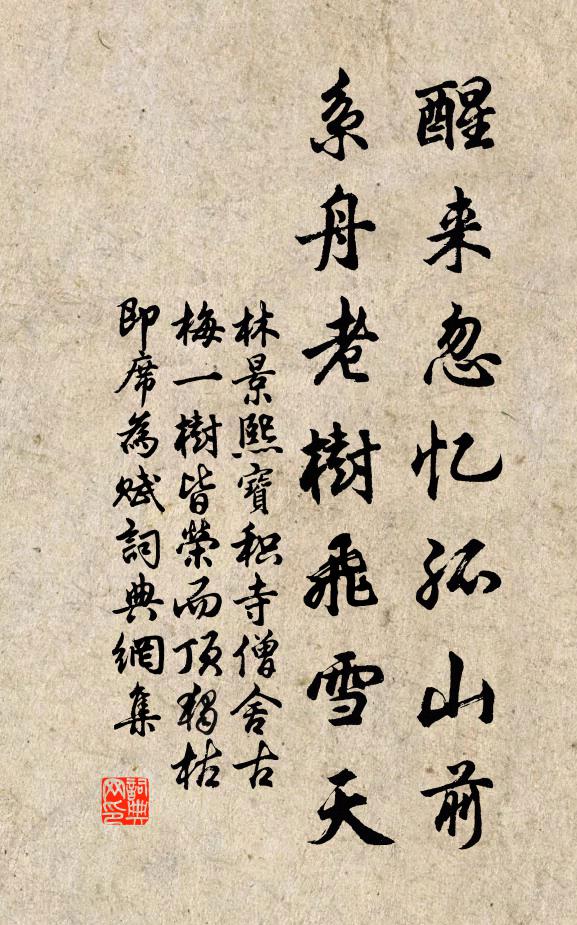 醒来忽忆孤山前
系舟老樹飛雪天
林景熙寶积寺僧舍古
梅一樹皆榮而顶獨枯
即席為赋詞典網集
詞典
网印